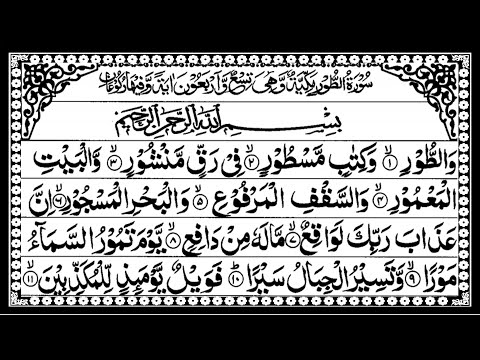 سُوْرَةُ الطُّوْرِ مَكِّيَّةٌ وَّهِيَ تِسْعٌ وَّاَرْبَعُوْنَ اٰيَةً وَّفِيْهَا رُكُوْعَانِ
بِسْمِ اللّٰهِ الرَّحْمٰنِ الرَّحِيْمِ
وَالطُّوْرِ ۙ﴿۱﴾ وَكِتٰبٍ مَّسْطُوْرٍ ۙ﴿۲﴾ فِيْ رَقٍّ مَّنْشُوْرٍ ۙ﴿۳﴾ وَّالْبَيْتِ
الْمَعْمُوْرِ ۙ﴿۴﴾ وَالسَّقْفِ الْمَرْفُوْعِ ۙ﴿۵﴾ وَالْبَحْرِ الْمَسْجُوْرِ ۙ﴿۶﴾ اِنَّ
عَذَابَ رَبِّكَ لَوَاقِعٌ ۙ﴿۷﴾ مَّا لَهٗ مِنْ دَافِعٍ ۙ﴿۸﴾ يَّوْمَ تَمُوْرُ السَّمَآءُ
مَوْرًا ۙ﴿۹﴾ وَّتَسِيْرُ الْجِبَالُ سَيْرًا ؕ﴿۱۰﴾ فَوَيْلٌ يَّوْمَئِذٍ لِّلْمُكَذِّبِيْنَ ۙ﴿۱۱﴾